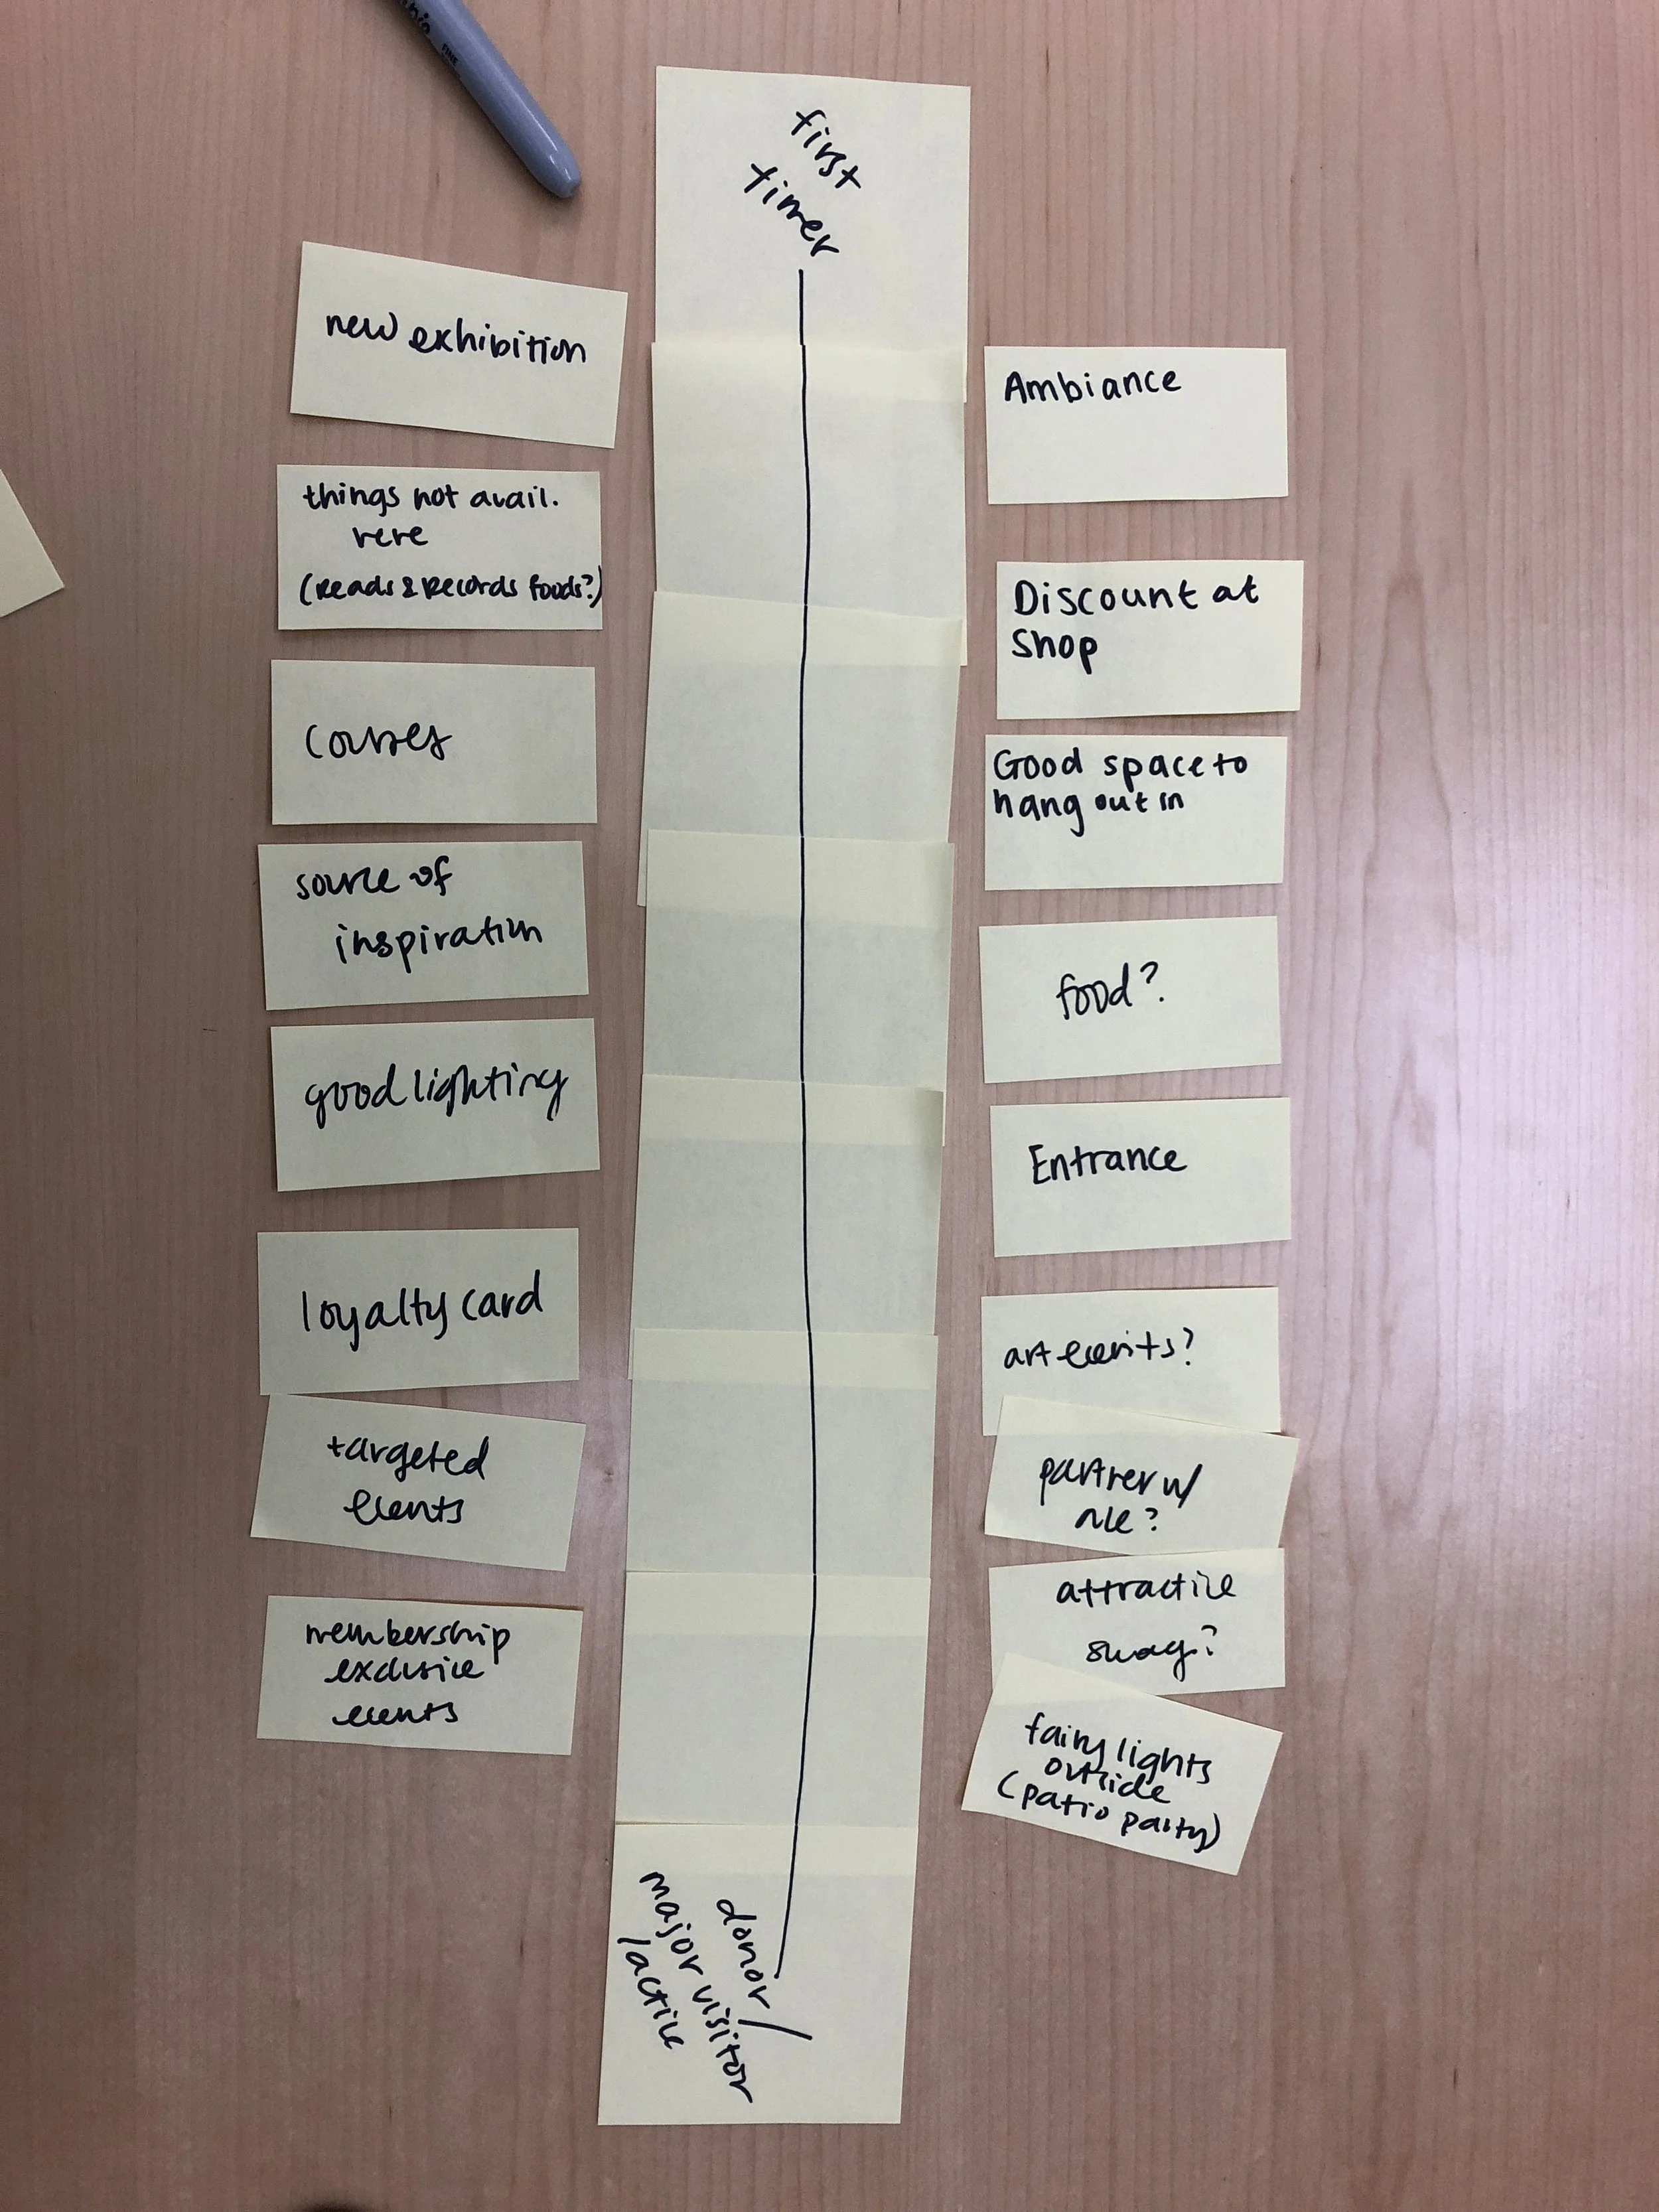 FINE
first
timer
new exhibition
things not avail.
here
(Reads & Records foods?)
courses
source of
inspiration
good lighting
loyalty card
targeted
events
membership
exclusive
events
Ambiance
Discount at
shop
Good space to
hang out in
food?
Entrance
art events?
partner w/
attractive
swag?
fairy lights
outside
(patio party)
donor /
major visitor
/active